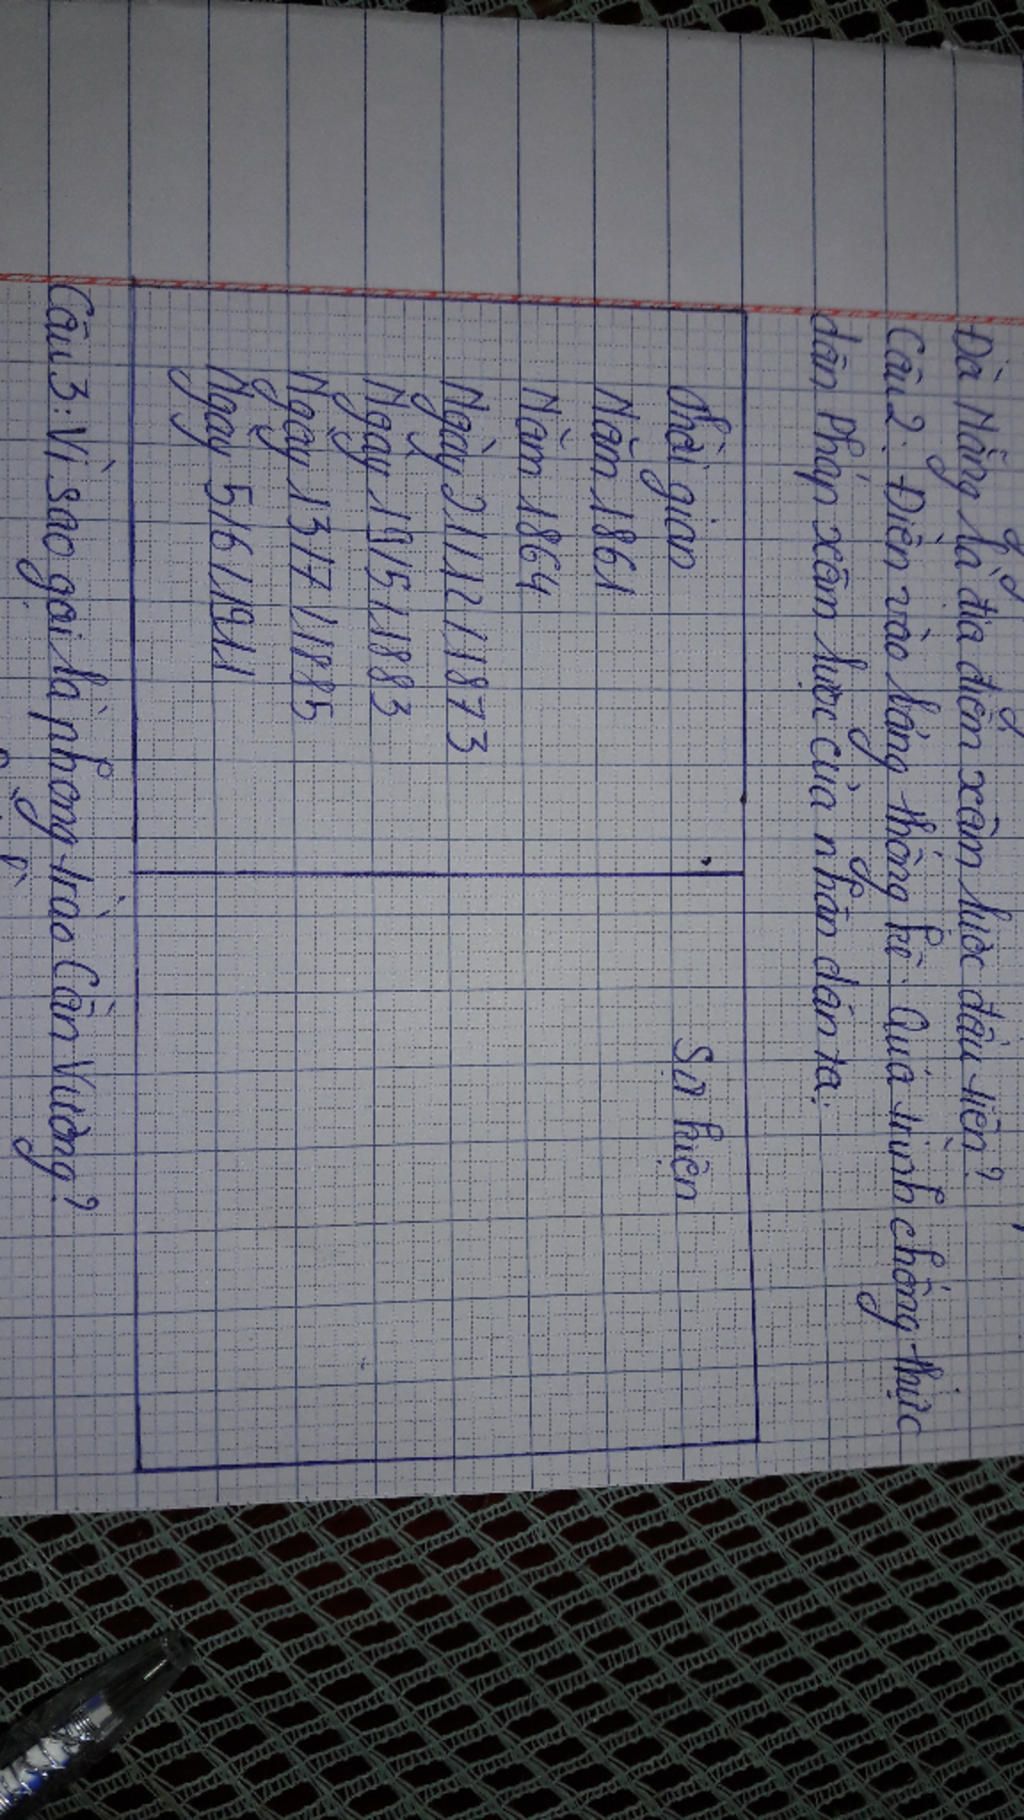 Đà Nẵng là địa điểm xâm lược đầu tiên?
Câu 2: Điền vào bảng thống kê: Quá trình chống thực
dân Pháp xâm lược của nhân dân ta:
Thời gian Sự kiện
Năm 1861
Năm 1864
Ngày 21/12/1873
Ngày 19/5/1883
Ngày 13/7/1885
Ngày 5/6/1911
Câu 3: Vì sao gọi là phong trào Cần Vương?